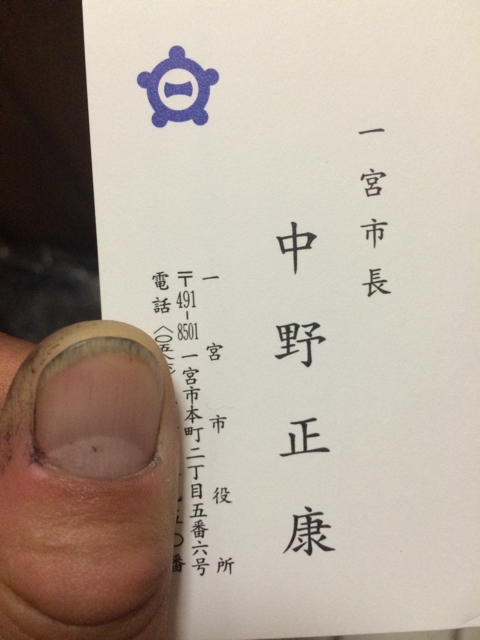 一宮市長
中野正康
一宮市役所
〒491-8501 一宮市本町二丁目五番六号
電話〈〇五八
五〇番